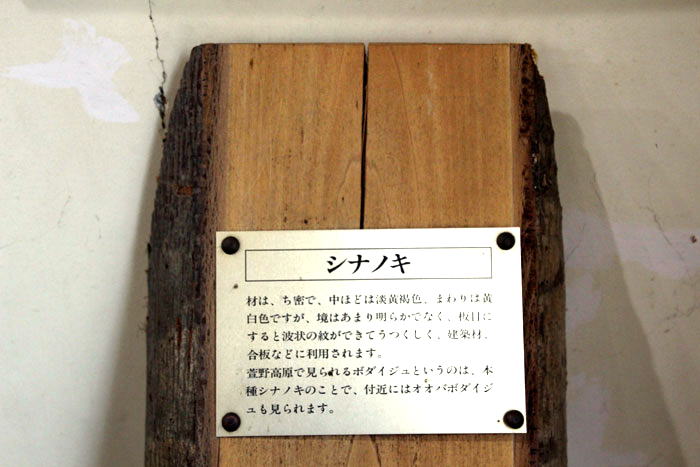 シナノキ
材は、ち密で、中ほどは淡黄褐色、まわりは黄
白色ですが、境はあまり明らかでなく、板目に
すると波状の紋ができてうつくしく、建築材、
合板などに利用されます。
萱野高原で見られるボダイジュというのは、本
種シナノキのことで、付近にはオオバボダイジ
ュも見られます。